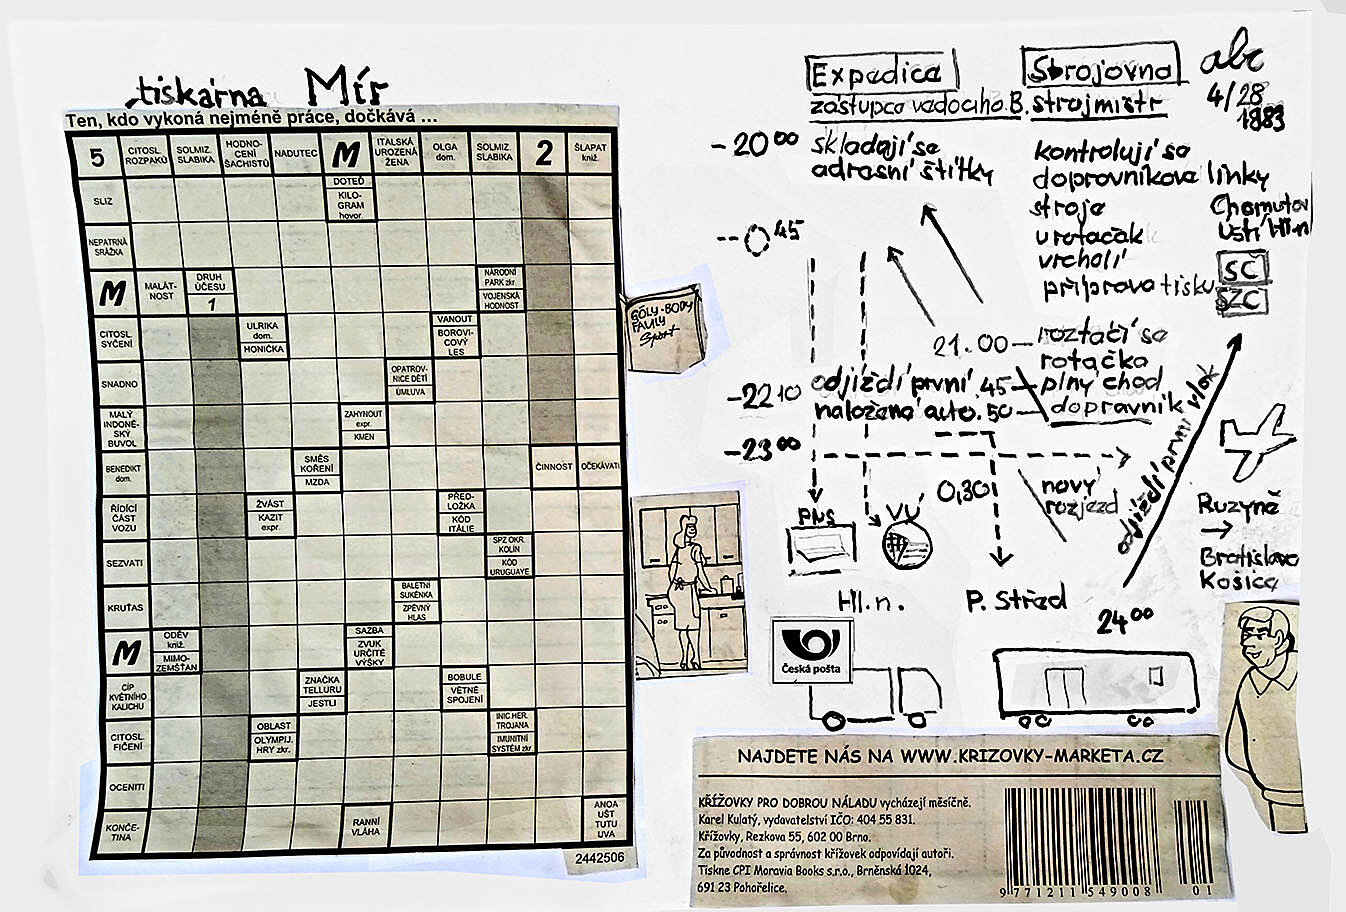 tiskárna Mír
Ten, kdo vykoná nejméně práce, dočkává ...
5
CITOSL. ROZPAKŮ
SOLMIZ. SLABIKA
HODNO-
CENÍ
ŠACHISTŮ
NADUTEC
M
ITALSKÁ
UROZENÁ
ŽENA
OLGA
dom.
SOLMIZ.
SLABIKA
2
ŠLAPAT
kniž.
SLIZ
DOTEĎ
KILO-
GRAM
hovor.
NEPATRNÁ
SRÁŽKA
M
MALÁT-
NOST
DRUH
ÚČESU
1
NÁRODNÍ
PARK zkr.
VOJENSKÁ
HODNOST
CITOSL.
SYČENÍ
ULRIKA
dom.
HONIČKA
VANOUT
BOROVI-
COVÝ
LES
SNADNO
OPATROV-
NICE DĚTÍ
ÚMLUVA
MALÝ
INDONÉ-
SKÝ
BUVOL
ZAHYNOUT
expr.
KMEN
BENEDIKT
dom.
SMĚS
KOŘENÍ
MZDA
ČINNOST
OČEKÁVATI
ŘÍDÍCÍ
ČÁST
VOZU
ŽVÁST
KAZIT
expr.
PŘED-
LOŽKA
KÓD
ITÁLIE
SEZVATI
SPZ OKR.
KOLÍN
KÓD
URUGUAYE
KRUŤAS
BALETNÍ
SUKÉNKA
ZPĚVNÝ
HLAS
M
ODĚV
kniž.
MIMO-
ZEMŠŤAN
SAZBA
ZVUK
URČITÉ
VÝŠKY
CÍP
KVĚTNÍHO
KALICHU
ZNAČKA
TELLURU
JESTLI
BOBULE
VĚTNÉ
SPOJENÍ
CITOSL.
FIČENÍ
OBLAST
OLYMPIJ.
HRY zkr.
INIC.HER.
TROJANA
IMUNITNÍ
SYSTÉM zkr.
OCENITI
KONČE-
TINA
RANNÍ
VLÁHA
ANOA
UŠT
TUTU
UVA
2442506
GÓLY-BODY
FAULY
Sport
Expedice
zástupce vedocího B.
Strojovna
strojmistr
abc
4/28
1983
-20⁰⁰ skládají se
adresní štítky
kontrolují se
dopravníkové linky
stroje
u rotaček
vrcholí
příprava tisku
Chomutov
Ústí Hl.n
SC
SZC
--0⁴⁵
21.00 — roztáčí se
rotačka
-22¹⁰ odjíždí první .45 — plny chod
naložené auto .50 — dopravník
-23⁰⁰
0,30
novy
rozjezd
odjíždí první vlak
PNS
VÚ
Hl.n.
P. Střed
24⁰⁰
Ruzyně
→
Bratislava
Košice
Česká pošta
NAJDETE NÁS NA WWW.KRIZOVKY-MARKETA.CZ
KŘÍŽOVKY PRO DOBROU NÁLADU vycházejí měsíčně.
Karel Kulatý, vydavatelství IČO: 404 55 831.
Křížovky, Rezkova 55, 602 00 Brno.
Za původnost a správnost křížovek odpovídají autoři.
Tiskne CPI Moravia Books s.r.o., Brněnská 1024,
691 23 Pohořelice.
9 771211 549008 01